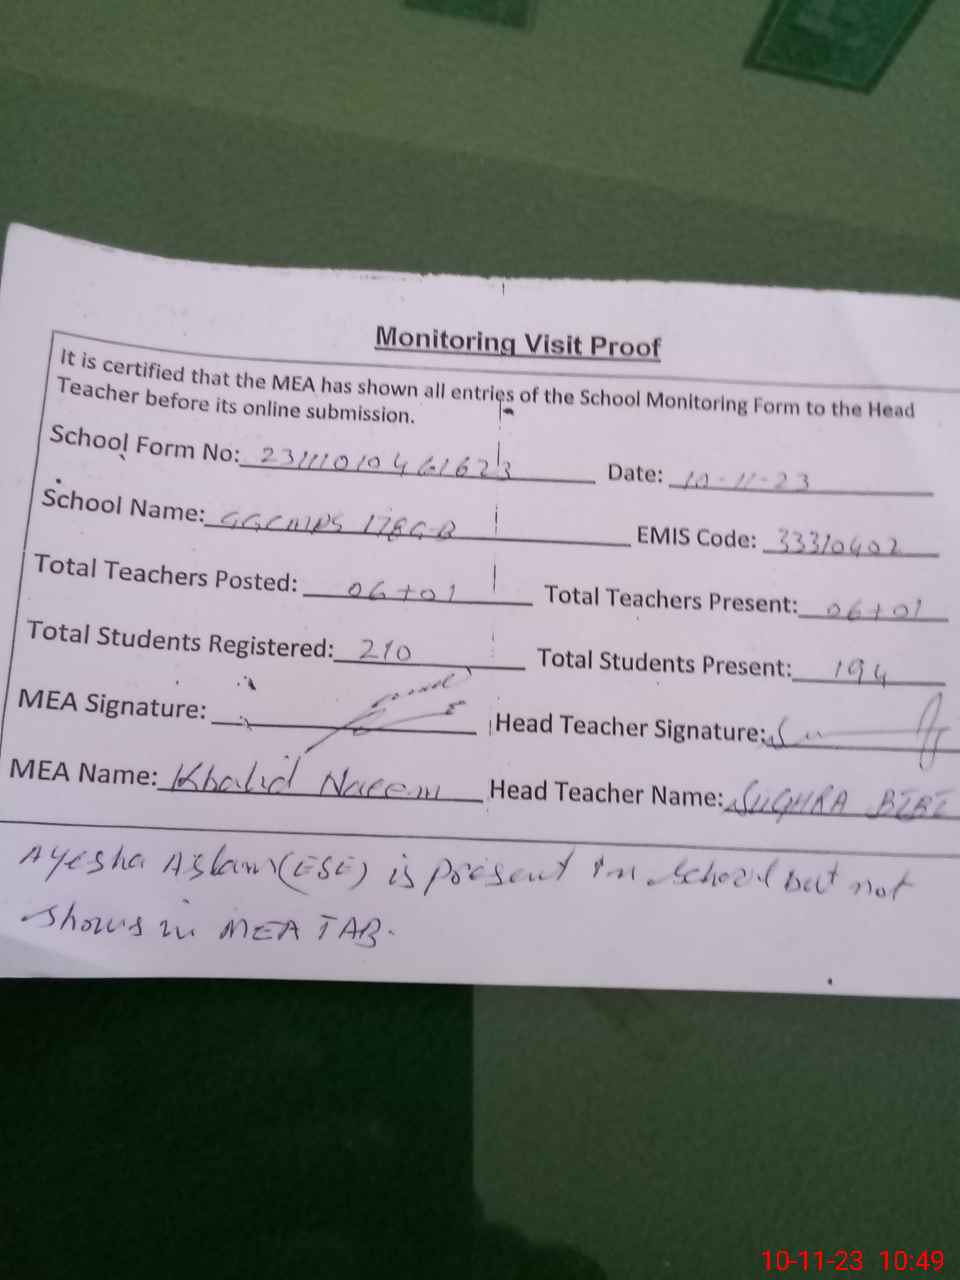 Monitoring Visit Proof
It is certified that the MEA has shown all entries of the School Monitoring Form to the Head
Teacher before its online submission.
School Form No: Date: 10-11-23
School Name: GGCMPS 178 G-B EMIS Code: 33310402
Total Teachers Posted: 06+01 Total Teachers Present: 06+01
Total Students Registered: 210 Total Students Present: 194
MEA Signature: Head Teacher Signature:
MEA Name: Khalid Naeem Head Teacher Name: SUGHRA BIBI
Ayesha Aslam (ESE) is present in school but not
shows in MEA TAB.
10-11-23 10:49